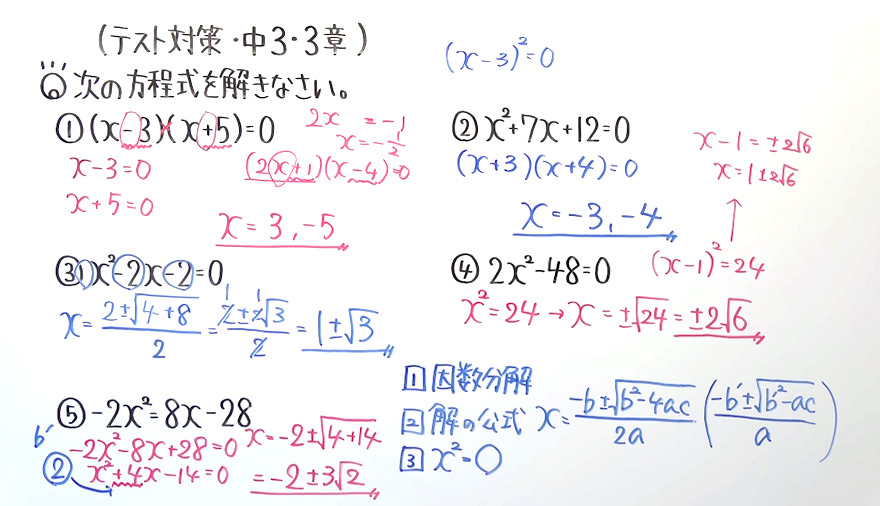 (テスト対策・中3・3章)
次の方程式を解きなさい。
(x-3)²=0
① (x-3)(x+5)=0
2x=-1
x=-1/2
x-3=0
(2x+1)(x-4)=0
x+5=0
x=3,-5
② x²+7x+12=0
(x+3)(x+4)=0
x=-3,-4
x-1=±2√6
x=1±2√6
↑
(x-1)²=24
③ 1x²-2x-2=0
x=(2±√(4+8))/2=(2±2√3)/2=1±√3
1 1
④ 2x²-48=0
x²=24→x=±√24=±2√6
⑤ -2x²=8x-28
b′
-2x²-8x+28=0
② x²+4x-14=0
x=-2±√(4+14)
=-2±3√2
1 因数分解
2 解の公式 x=(-b±√(b²-4ac))/2a ((-b′±√(b′²-ac))/a)
3 x²=○